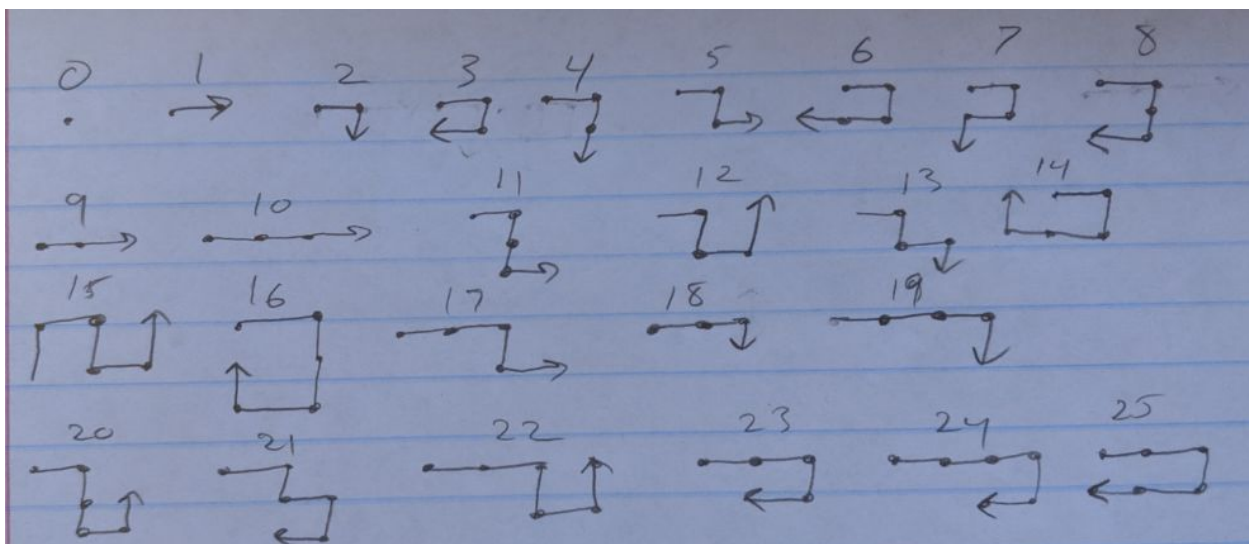 0 1 2 3 4 5 6 7 8
9 10 11 12 13 14
15 16 17 18 19
20 21 22 23 24 25